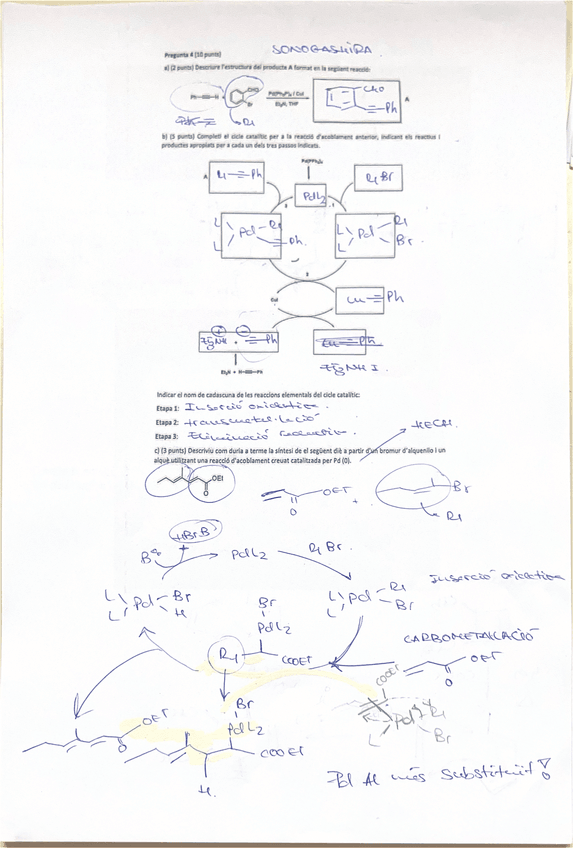 SONOGASHIRA
Pregunta 4 (10 punts)
a) (2 punts) Descriure l'estructura del producte A format en la següent reacció:
Ph≡H + CHO Br Pd(Ph₃P)₄ / CuI Et₃N, THF CHO ≡Ph A
R₁
b) (5 punts) Completi el cicle catalític per a la reacció d'acoblament anterior, indicant els reactius i
productes apropiats per a cada un dels tres passos indicats.
Pd(PPh₃)₄
A R₁≡Ph PdL₂ R₁Br
3 1
L L Pd R₁ ≡Ph L L Pd R₁ Br
2
CuI Cu≡Ph
Et₃NH ≡Ph Cu≡Ph
Et₃N + H≡Ph Et₃NH I
Indicar el nom de cadascuna de les reaccions elementals del cicle catalític:
Etapa 1: Inserció oxidativa
Etapa 2: transmetal·lació
Etapa 3: Eliminació reductiva
c) (3 punts) Descriviu com duria a terme la síntesi de el següent diè a partir d'un bromur d'alquenilo i un
alquè utilitzant una reacció d'acoblament creuat catalitzada per Pd (0).
HECK
OEt O OET O + Br
R₁
HBr.B
B PdL₂ R₁Br
L L Pd Br H L L Pd R₁ Br Inserció oxidativa
Br
PdL₂ CARBOMETAL·LACIÓ
R₁ COOET OET O
COOET
Br L Pd R₁ Br
OET O PdL₂
COOET
H
Pd Al més substituït!